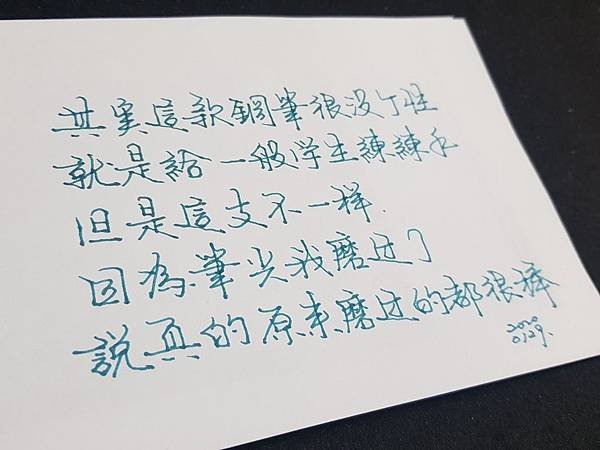 其實這款鋼筆很没个性
就是給一般学生練練手
但是這支不一样.
因為筆尖我磨过了
說真的原来磨过的都很棒
2020
01.29.